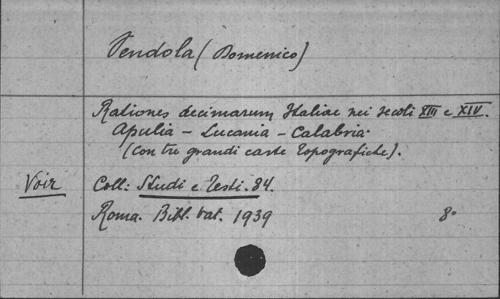 Vendola (Domenico)
Rationes decimarum Italiae nei secoli XIII e XIV.
Apulia - Lucania - Calabria.
(con tre grandi carte topografiche).
Voir Coll: Studi e Testi. 84.
Roma. Bibl. Vat. 1939 8°